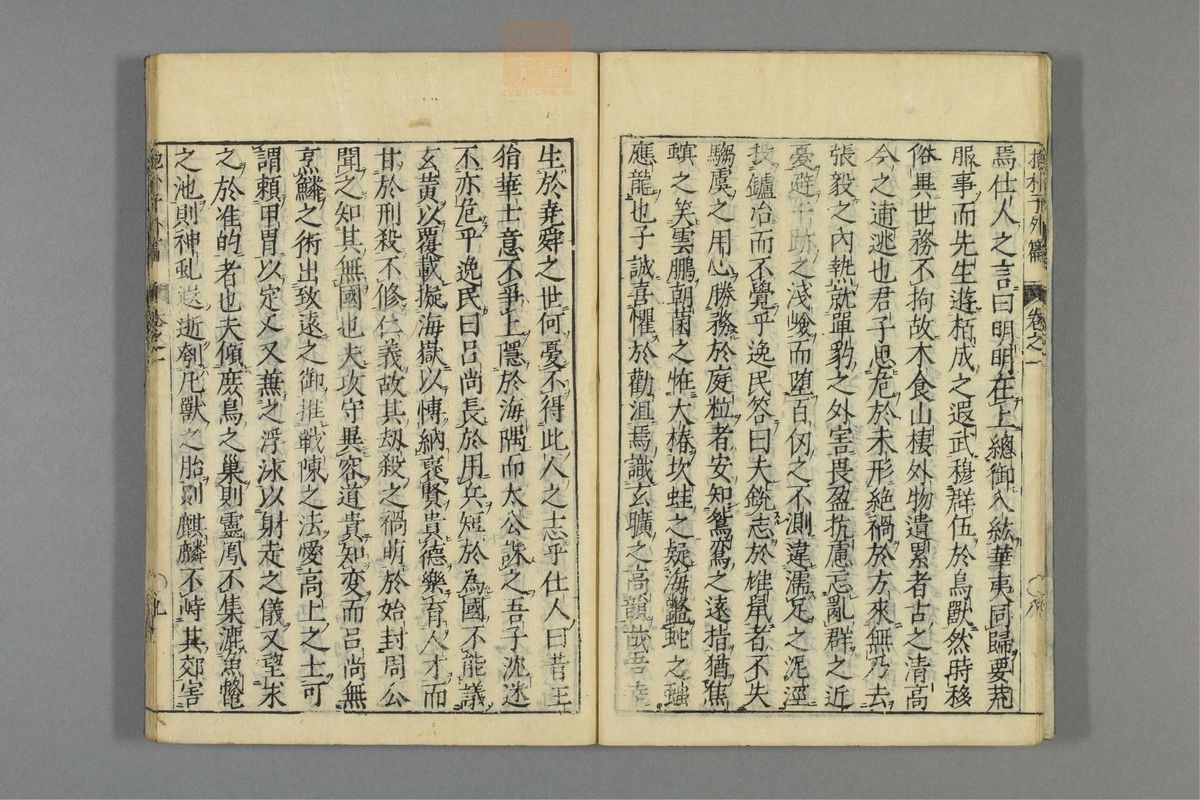 焉仕人之言曰明明在上總御八紘華夷同歸要荒
服事而先生遊栢成之遐武穆群伍於鳥獸然時移
俗異世務不拘故木食山棲外物遺累者古之清高
今之逋逃也君子思危於未形絶禍於方來無乃去
張毅之內熱就單豹之外害畏盈抗慮忘亂群之近
憂避牛跡之淺嶮而堕百仭之不測違濡足之泥涇
投鑪冶而不覺乎逸民答曰夫銳志於雛鼠者不失
騶虞之用心勝務於庭粒者安知鴛鸞之遠指猶焦
螟之笑雲鵬朝菌之恠大椿坎蛙之疑海鼈蛇之嗤
應龍也子誠喜懼於勸沮焉識玄曠之高韻哉吾幸
生於尭舜之世何憂不得此人之志乎仕人曰昔狂
狷華士意不爭上隱於海隅而大公誅之吾子沈迷
不亦危乎逸民曰呂尚長於用兵短於為國不能議
玄黃以覆載擬海嶽以博納褒賢貴德樂育人才而
甘於刑殺不修仁義故其刼殺之禍萌於始封周公
聞之知其無國也夫攻守異容道貴知変而呂尚無
烹鱗之術出致遠之御推戦陳之法愛高上之士可
謂頼甲冑以定又又蕪之浮泳以射走之儀又望求
之於准的者也夫傾庶鳥之巢則靈鳳不集漉魚鼈
之池則神虬遐逝刳凡獸之胎則麒麟不峙其郊害
抱朴子外篇 卷之一 八